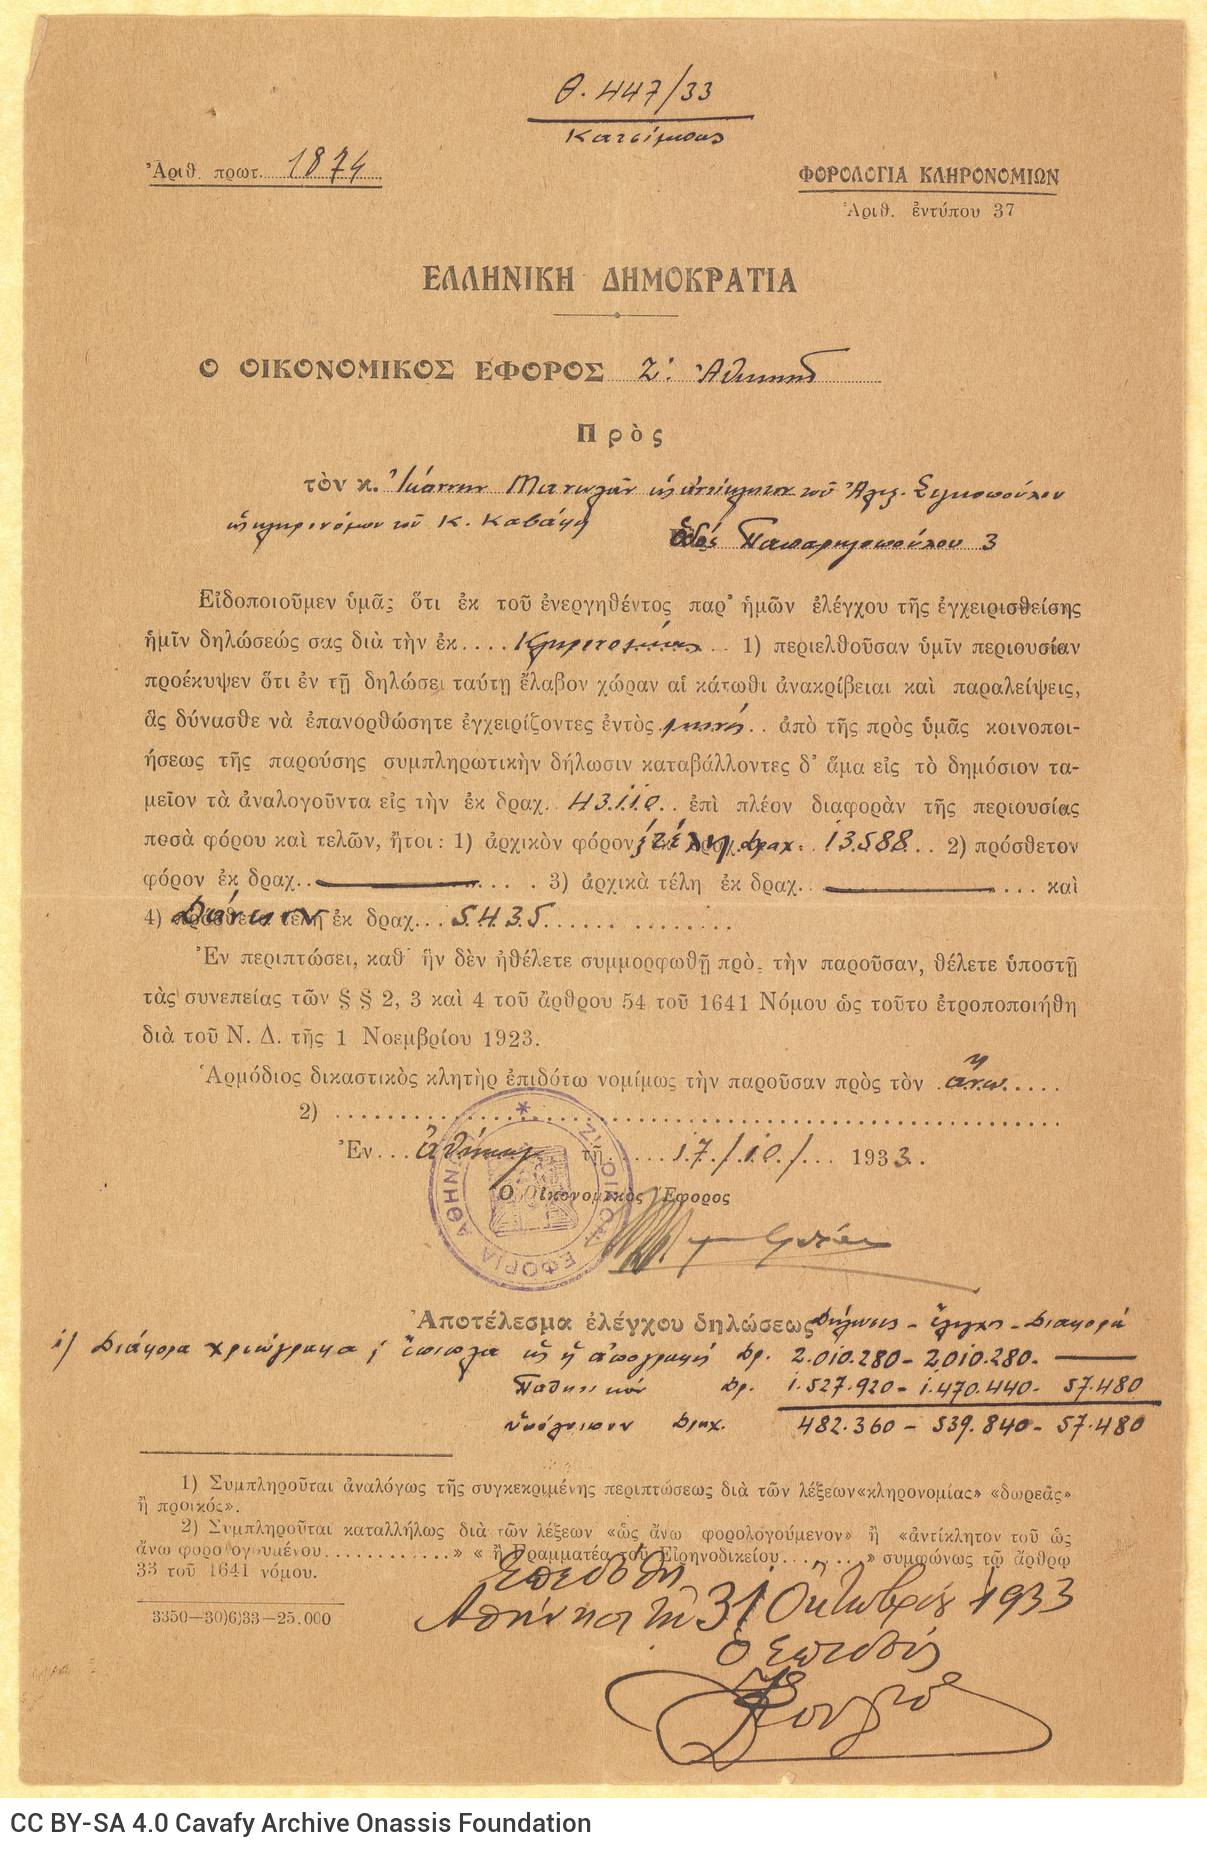 Θ. 447/33
Κατσίμπας
Ἀριθ. πρωτ. 1874
ΦΟΡΟΛΟΓΙΑ ΚΛΗΡΟΝΟΜΙΩΝ
Ἀριθ. ἐντύπου 37
ΕΛΛΗΝΙΚΗ ΔΗΜΟΚΡΑΤΙΑ
Ο ΟΙΚΟΝΟΜΙΚΟΣ ΕΦΟΡΟΣ Ζ' Ἀθηνῶν
Πρὸς
τὸν κ. Ἰωάννην ὡς ἀντίκλητον τοῦ Ἀλεξ. Σεγκοπούλου
κληρονόμου τοῦ Κ. Καβάφη ὁδός Παπαρρηγοπούλου 3
Εἰδοποιοῦμεν ὑμᾶς ὅτι ἐκ τοῦ ἐνεργηθέντος παρ' ἡμῶν ἐλέγχου τῆς ἐγχειρισθείσης
ἡμῖν δηλώσεώς σας διὰ τὴν ἐκ.... Κληρονομίας .. 1) περιελθοῦσαν ὑμῖν περιουσίαν
προέκυψεν ὅτι ἐν τῇ δηλώσει ταύτῃ ἔλαβον χώραν αἱ κάτωθι ἀνακρίβειαι καὶ παραλείψεις,
ἃς δύνασθε νὰ ἐπανορθώσητε ἐγχειρίζοντες ἐντὸς μηνός .. ἀπὸ τῆς πρὸς ὑμᾶς κοινοποι-
ήσεως τῆς παρούσης συμπληρωτικὴν δήλωσιν καταβάλλοντες δ' ἅμα εἰς τὸ δημόσιον τα-
μεῖον τὰ ἀναλογοῦντα εἰς τὴν ἐκ δραχ. 43.110.. ἐπὶ πλέον διαφορὰν τῆς περιουσίας
ποσὰ φόρου καὶ τελῶν, ἤτοι: 1) ἀρχικὸν φόρον τέλη δραχ. 13.588.. 2) πρόσθετον
φόρον ἐκ δραχ. .... 3) ἀρχικὰ τέλη ἐκ δραχ. ... καὶ
4) πρόσθετα τέλη ἐκ δραχ... 5.435...... ........
Ἐν περιπτώσει, καθ' ἣν δὲν ἠθέλετε συμμορφωθῇ πρὸς τὴν παροῦσαν, θέλετε ὑποστῇ
τὰς συνεπείας τῶν § § 2, 3 καὶ 4 τοῦ ἄρθρου 54 τοῦ 1641 Νόμου ὡς τοῦτο ἐτροποποιήθη
διὰ τοῦ Ν. Δ. τῆς 1 Νοεμβρίου 1923.
Ἁρμόδιος δικαστικὸς κλητὴρ ἐπιδότω νομίμως τὴν παροῦσαν πρὸς τὸν ἄνω....
2) ........
Ἐν... Ἀθήναις τῇ..... 17/10/... 1933..
Ὁ Οἰκονομικὸς Ἔφορος
ΟΙΚΟΝ. ΕΦΟΡΙΑ ΑΘΗΝΩΝ
Ἀποτέλεσμα ἐλέγχου δηλώσεως Δήλωσις - Ἔλεγχος - Διαφορά
1) Διάφορα χρεώγραφα, ἔπιπλα ὡς ἡ ἀπογραφή Δρ. 2.010.280 - 2.010.280 - —
Παθητικόν Δρ. 1.527.920 - 1.470.440 - 57.480
ὑπόλοιπον Δραχ. 482.360 - 539.840 - 57.480
1) Συμπληροῦται ἀναλόγως τῆς συγκεκριμένης περιπτώσεως διὰ τῶν λέξεων «κληρονομίας» «δωρεᾶς»
ἢ προικός».
2) Συμπληροῦται καταλλήλως διὰ τῶν λέξεων «ὡς ἄνω φορολογούμενον» ἢ «ἀντίκλητον τοῦ ὡς
ἄνω φορολογουμένου............» « ἢ Γραμματέα τοῦ Εἰρηνοδικείου........» συμφώνως τῷ ἄρθρῳ
33 τοῦ 1641 νόμου.
3350—30)6)33—25.000
Ἐπεδόθη
Ἀθήνησι τῇ 31 Ὀκτωβρίου 1933
Ὁ ἐπιδούς
CC BY-SA 4.0 Cavafy Archive Onassis Foundation